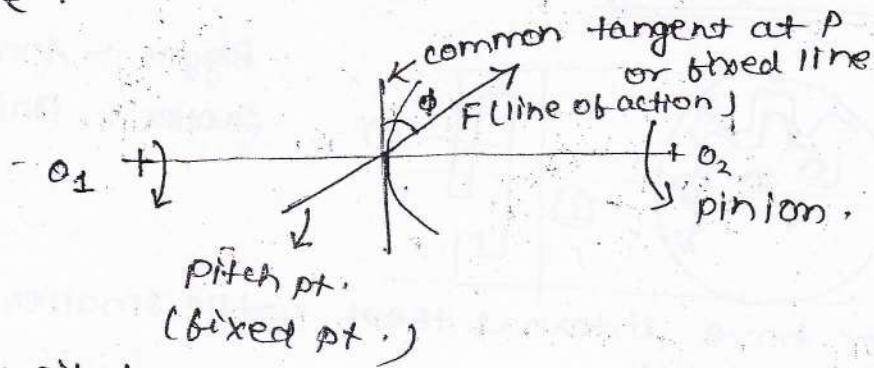 common tangent at P
or fixed line
ϕ
F (line of action)
O1
O2
pinion.
Pitch pt.
(fixed pt.)